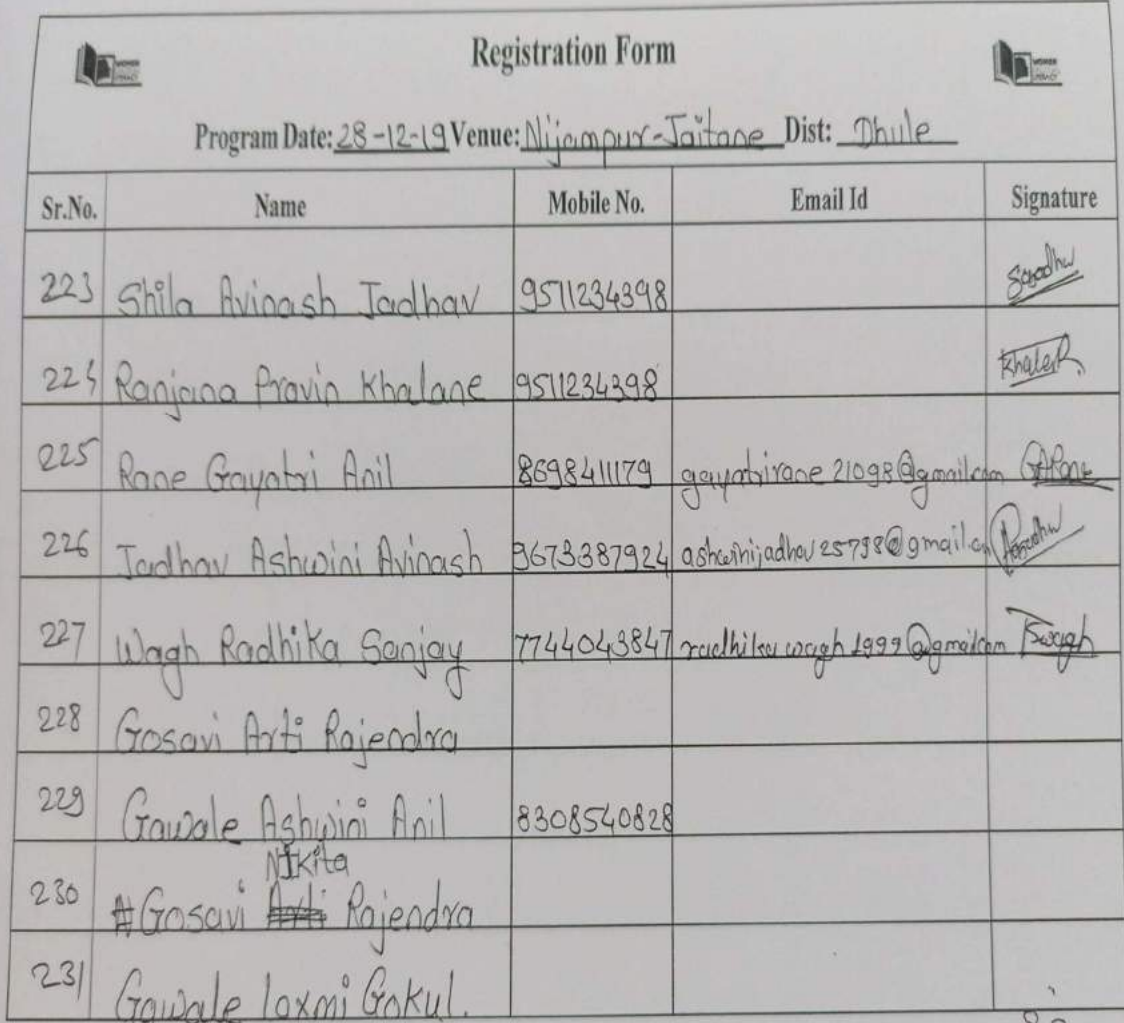 Registration Form
WOMEN
WOMEN
Program Date: 28-12-19 Venue: Nijampur-Jaitane Dist: Dhule
Sr.No. Name Mobile No. Email Id Signature
223 Shila Avinash Jadhav 9511234398
224 Ranjana Pravin Khalane 9511234398
225 Rane Gayatri Anil 8698411179 gayatrirane21098@gmail.com GARane
226 Jadhav Ashwini Avinash 9673387924 ashwinijadhav25798@gmail.com
227 Wagh Radhika Sanjay 7744043847 radhikawagh1999@gmail.com Rwagh
228 Gosavi Arti Rajendra
229 Gawale Ashwini Anil 8308540828
230 Gosavi Nikita Rajendra
231 Gawale laxmi Gokul.